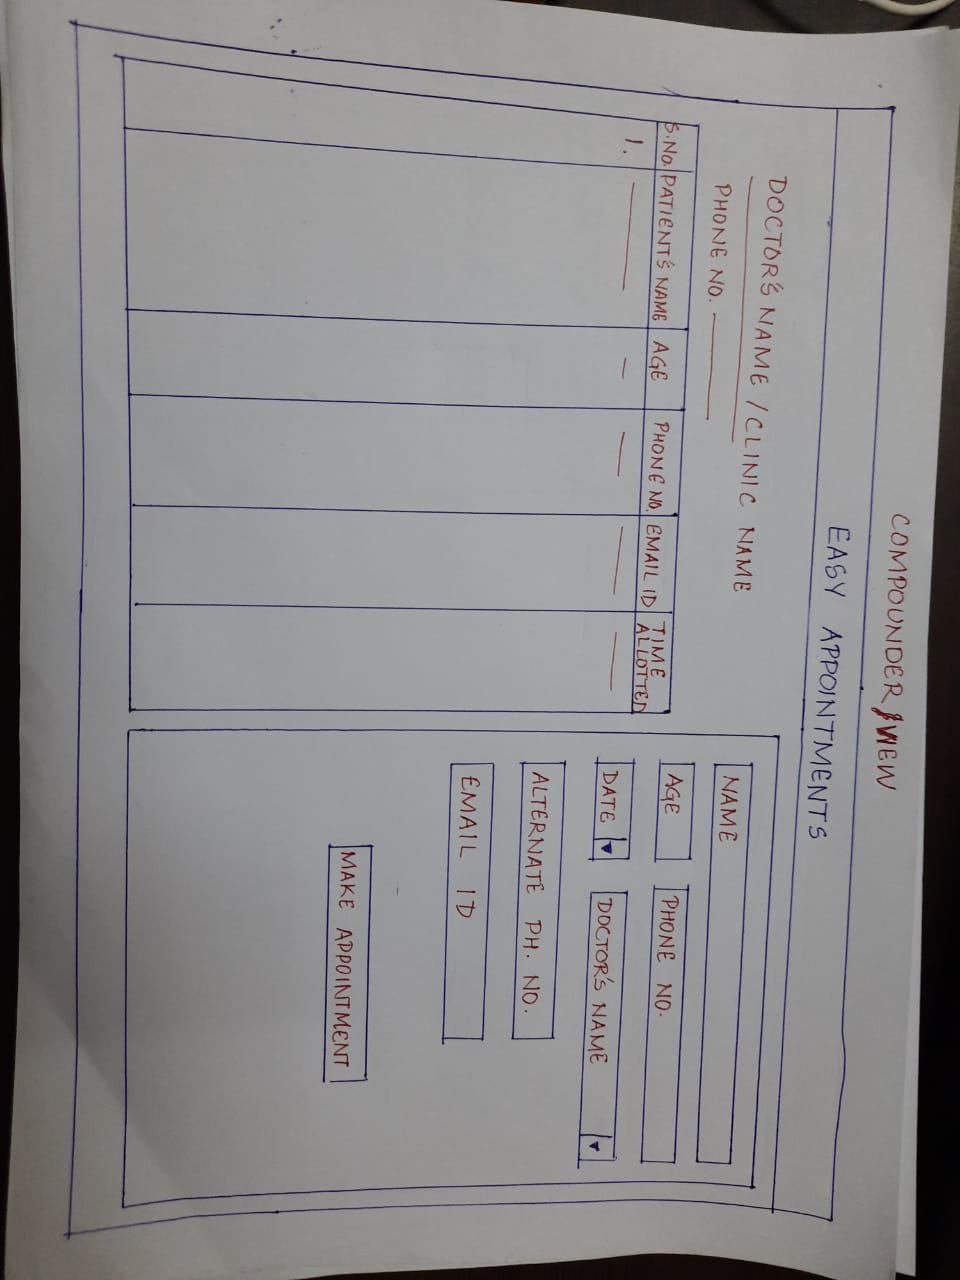 COMPOUNDER VIEW
EASY APPOINTMENTS
DOCTOR'S NAME / CLINIC NAME
PHONE NO.
S.No. PATIENT'S NAME AGE PHONE NO. EMAIL ID TIME ALLOTTED
1.
NAME
AGE PHONE NO.
DATE DOCTOR'S NAME
ALTERNATE PH. NO.
EMAIL ID
MAKE APPOINTMENT